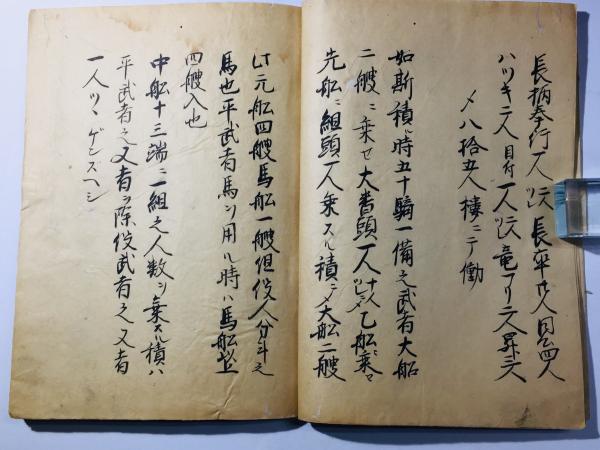 長柄奉行一人 長卒廿人 四人
ハツキ二人 目付一人 竜アリ二人
〆八拾五人積ニテ働
如斯積ル時五十騎一備之武者大船
二艘ニ乗セ大番頭一人 乙船ニ乗セ
先船ニ組頭一人乗スル積ニ〆大船二艘
此元船四艘馬船一艘但役人分斗之
馬也平武者馬ヲ用ル時ハ馬船
四艘入也
中船十三端ニ一組之人数ヲ乗スル積ハ
平武者之又者ヲ除役武者之又者
一人ツヽゲンスヘシ